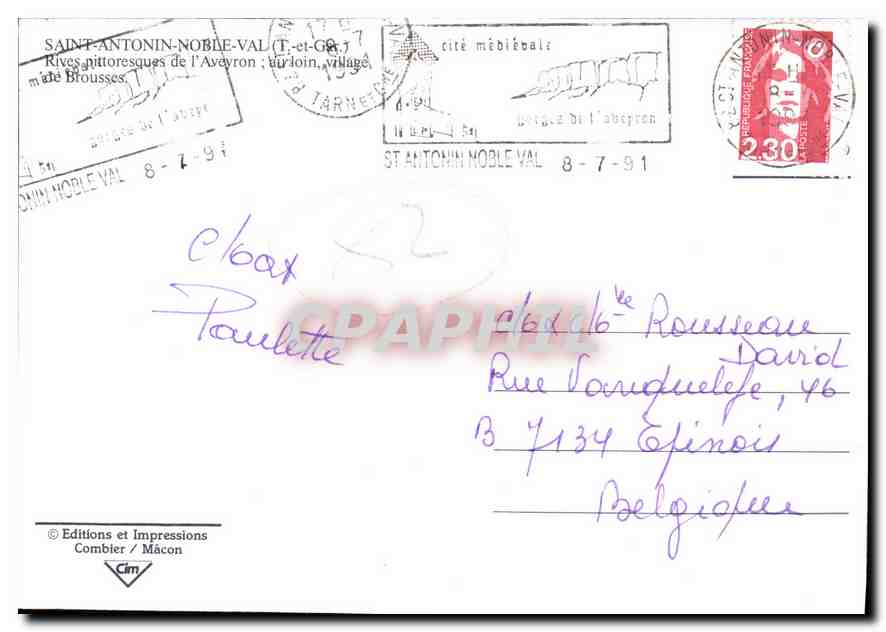 SAINT-ANTONIN-NOBLE-VAL (T.-et-Gar.)
Rives pittoresques de l'Aveyron ; au loin, village
de Brousses.
cité médiévale
gorges de l'aveyron
ST ANTONIN NOBLE VAL 8-7-91
gorges de l'aveyr
ONIN NOBLE VAL 8-7-91
TARN ET
REPUBLIQUE FRANÇAISE
LA POSTE
2,30
Paulette
CPAPHIL
Rousseau
David
Rue 46
B 7134 Epinois
Belgique
© Editions et Impressions
Combier / Mâcon
Cim